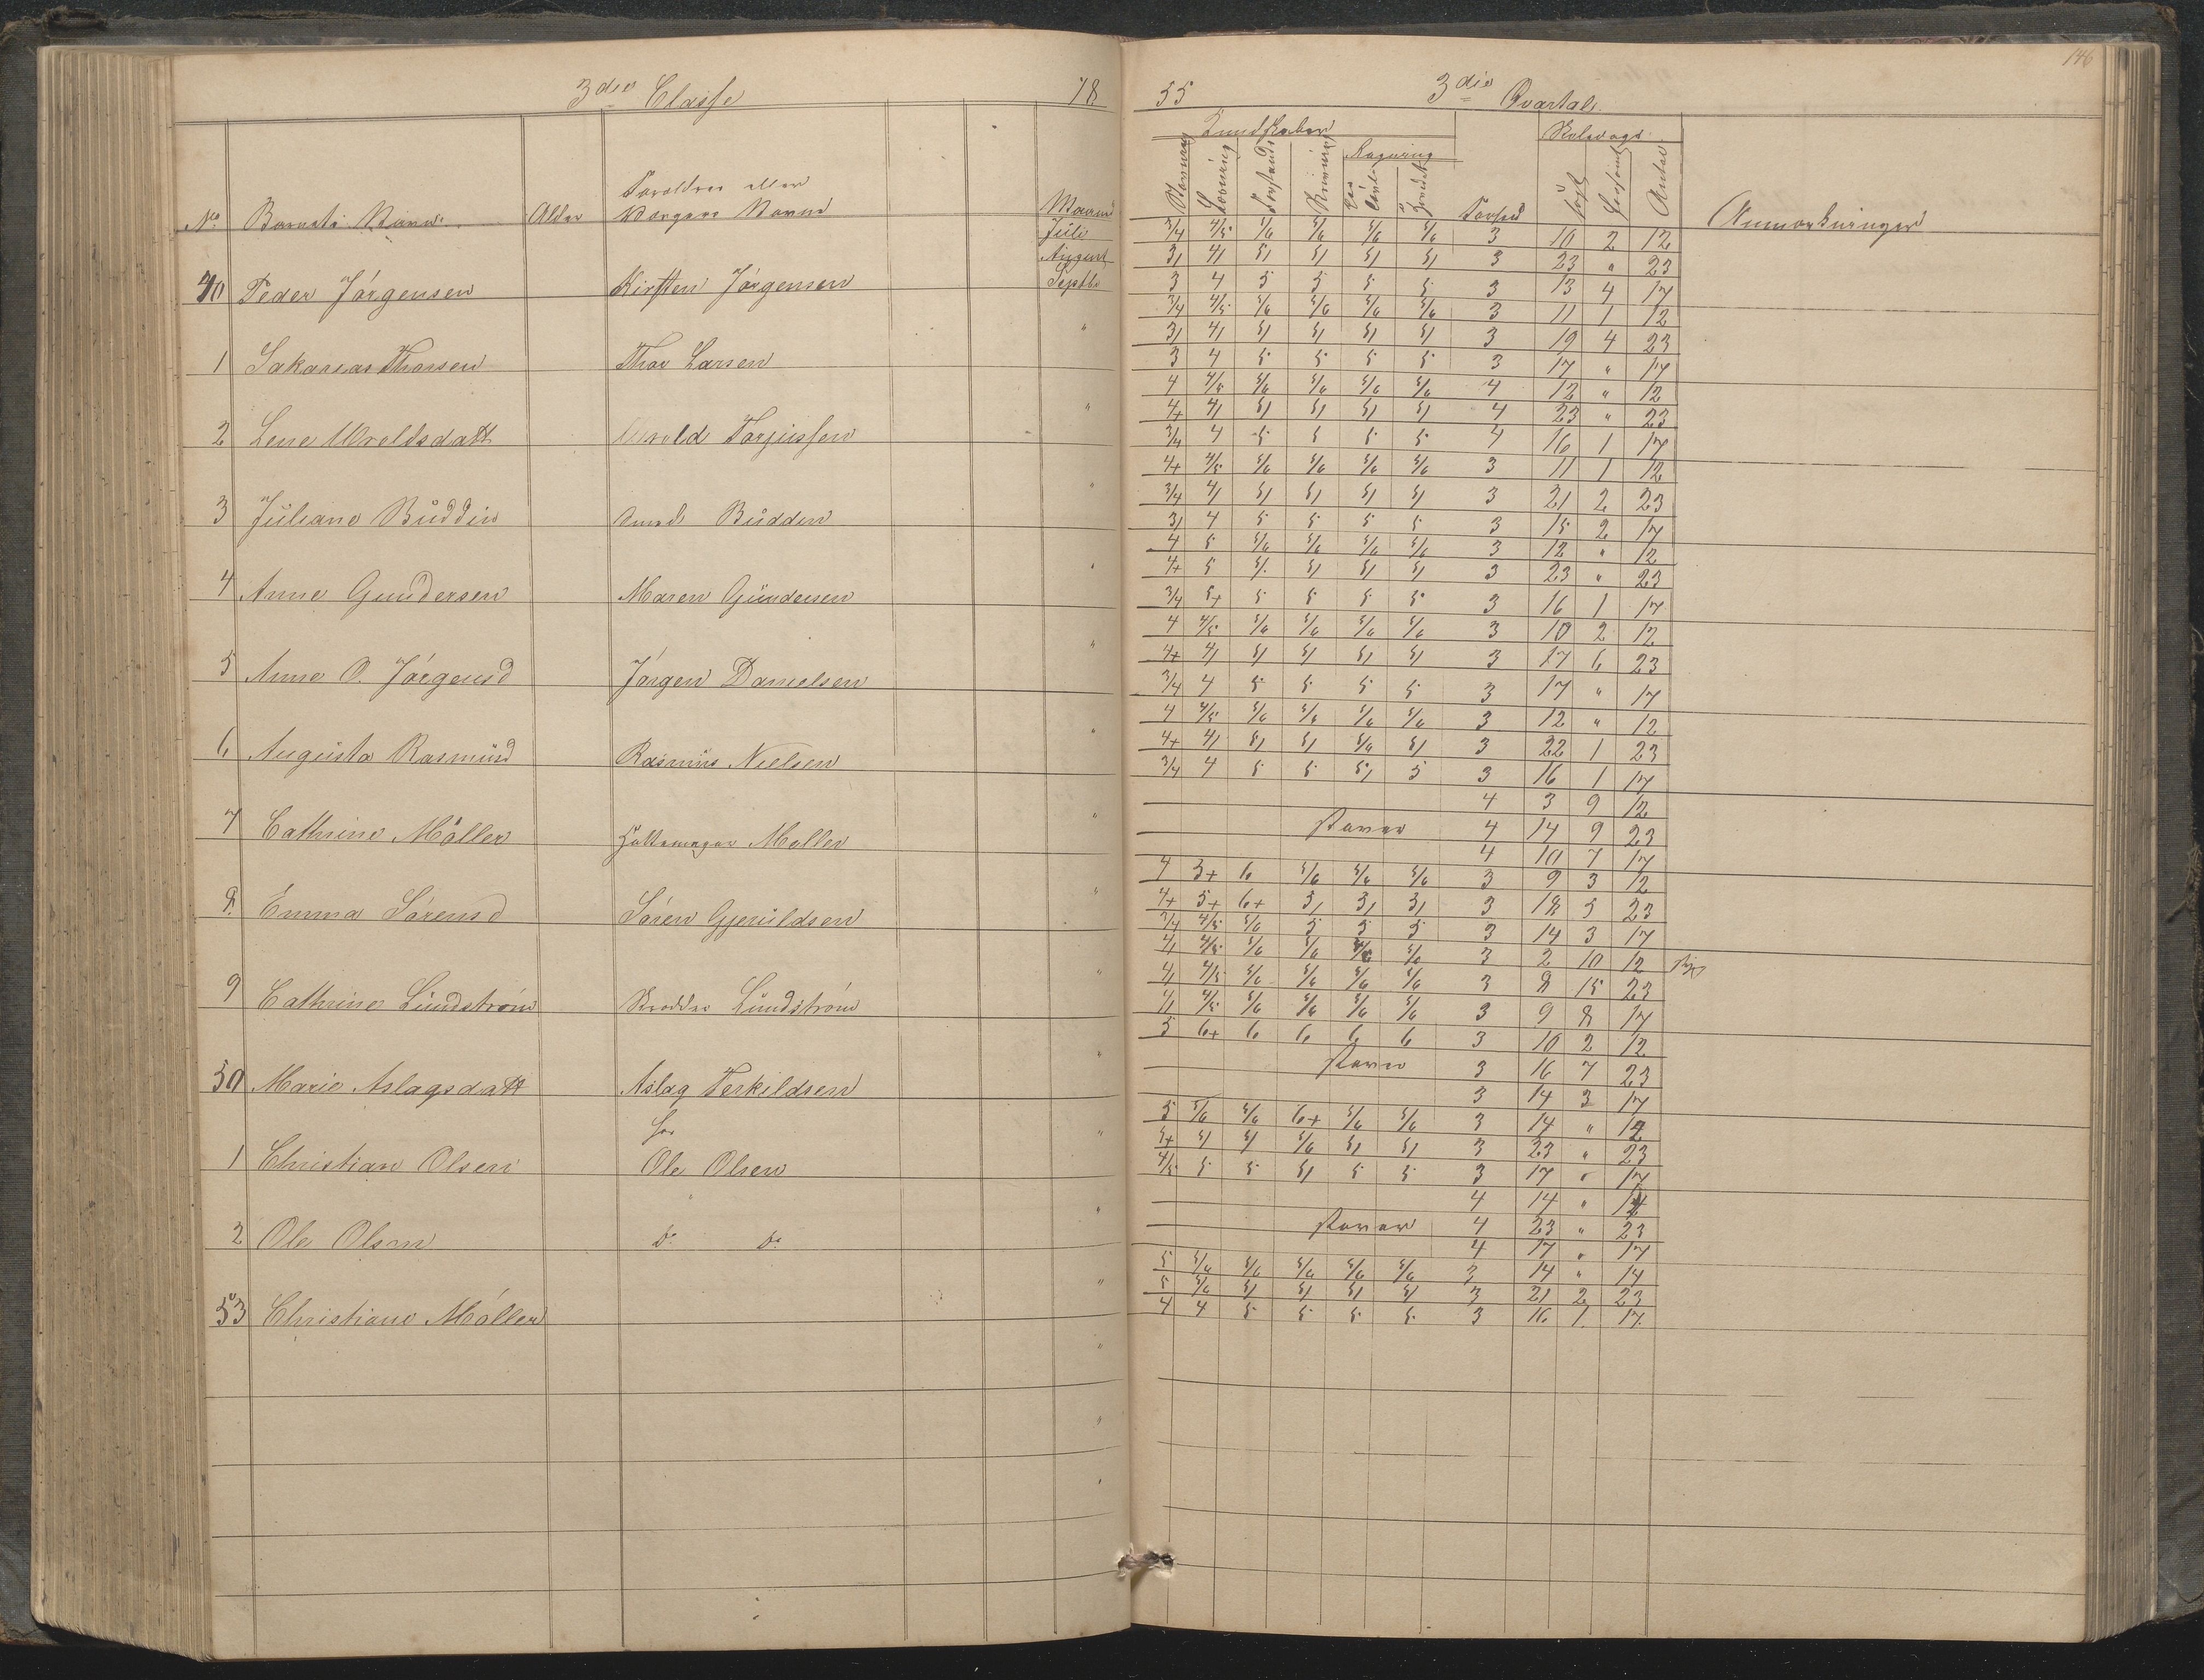 146
3die Classe 1855 3die Qvartal.
Kundskaber Skoledage
Regning
No. Barnets Navn. Alder Forældres eller Værgers Navne Maaned Stavning Læsning Forstand Skrivning Forhold Søgt Forsømt Antal Anmærkninger
Juli 3/4 4/5 5/6 5/6 5/6 5/6 3 10 2 12
August 3/ 4/ 5/ 5/ 5/ 5/ 3 23 " 23
40 Peder Jörgensen Kirsten Jörgensen Septbr 3 4 5 5 5 5 3 13 4 17
3/4 4/5 5/6 5/6 5/6 5/6 3 11 1 12
" 3/ 4/ 5/ 5/ 5/ 5/ 3 19 4 23
1 Sakarias Thorsen Thor Larsen 3 4 5 5 5 5 3 17 " 17
4 4/5 5/6 5/6 5/6 5/6 4 12 " 12
" 4+ 4/ 5/ 5/ 5/ 5/ 4 23 " 23
2 Lene Wroldsdatt Wrold Torjussen 3/4 4 5 5 5 5 4 16 1 17
4+ 4/5 5/6 5/6 5/6 5/6 3 11 1 12
" 3/4 4/ 5/ 5/ 5/ 5/ 3 21 2 23
3 Juliane Büdden Büdden 3/ 4 5 5 5 5 3 15 2 17
4 5 5/6 5/6 5/6 5/6 3 12 " 12
" 4+ 5 5/ 5/ 5/ 5/ 3 23 " 23
4 Anne Gundersen Maren Gündersen 3/4 5+ 5 5 5 5 3 16 1 17
4 4/5 5/6 5/6 5/6 5/6 3 10 2 12
" 4+ 4/ 5/ 5/ 5/ 5/ 3 17 6 23
5 Anne O. Jörgensd Jörgen Danielsen 3/4 4 5 5 5 5 3 17 " 17
4 4/5 5/6 5/6 5/6 5/6 3 12 " 12
" 4+ 4/ 5/ 5/ 5/6 5/ 3 22 1 23
6 Augusta Rasmusd Rasmüs Nielsen 3/4 4 5 5 5/ 5 3 16 1 17
4 3 9 12
" staver 4 14 9 23
7 Cathrine Möller Möller 4 10 7 17
4 3+ 6 5/6 5/6 5/6 3 9 3 12
" 4+ 5+ 6+ 5/ 5/ 5/ 3 18 5 23
8. Emma Sörensd Sören Gjeruldsen 3/4 4/5 5/6 5 5 5 3 14 3 17
4/ 4/5 5/6 5/6 5/6 5/6 3 2 10 12 syg
" 4/ 4/5 5/6 5/6 5/6 5/6 3 8 15 23
9 Cathrine Lündström Skredder Lündström 4/ 4/5 5/6 5/6 5/6 5/6 3 9 8 17
5 6+ 6 6 6 6 3 10 2 12
" staver 3 16 7 23
50 Marie Aslagsdatt Aslag Terkildsen 3 14 3 17
5 5/6 5/6 6+ 5/6 5/6 3 14 " 12
" 5+ 5/ 5/ 5/6 5/ 5/ 3 23 " 23
1 Christian Olsen Ole Olsen 4/5 5 5 5/ 5 5 3 17 " 17
4 14 " 14
" staver 4 23 " 23
2 Ole Olsen do do 4 17 " 17
5 5/6 5/6 5/6 5/6 5/6 3 14 " 14
" 5 5/6 5/ 5/ 5/ 5/ 3 21 2 23
53 Christiane Möller 4 4 5 5 5 5 3 16 1 17
"
"
"